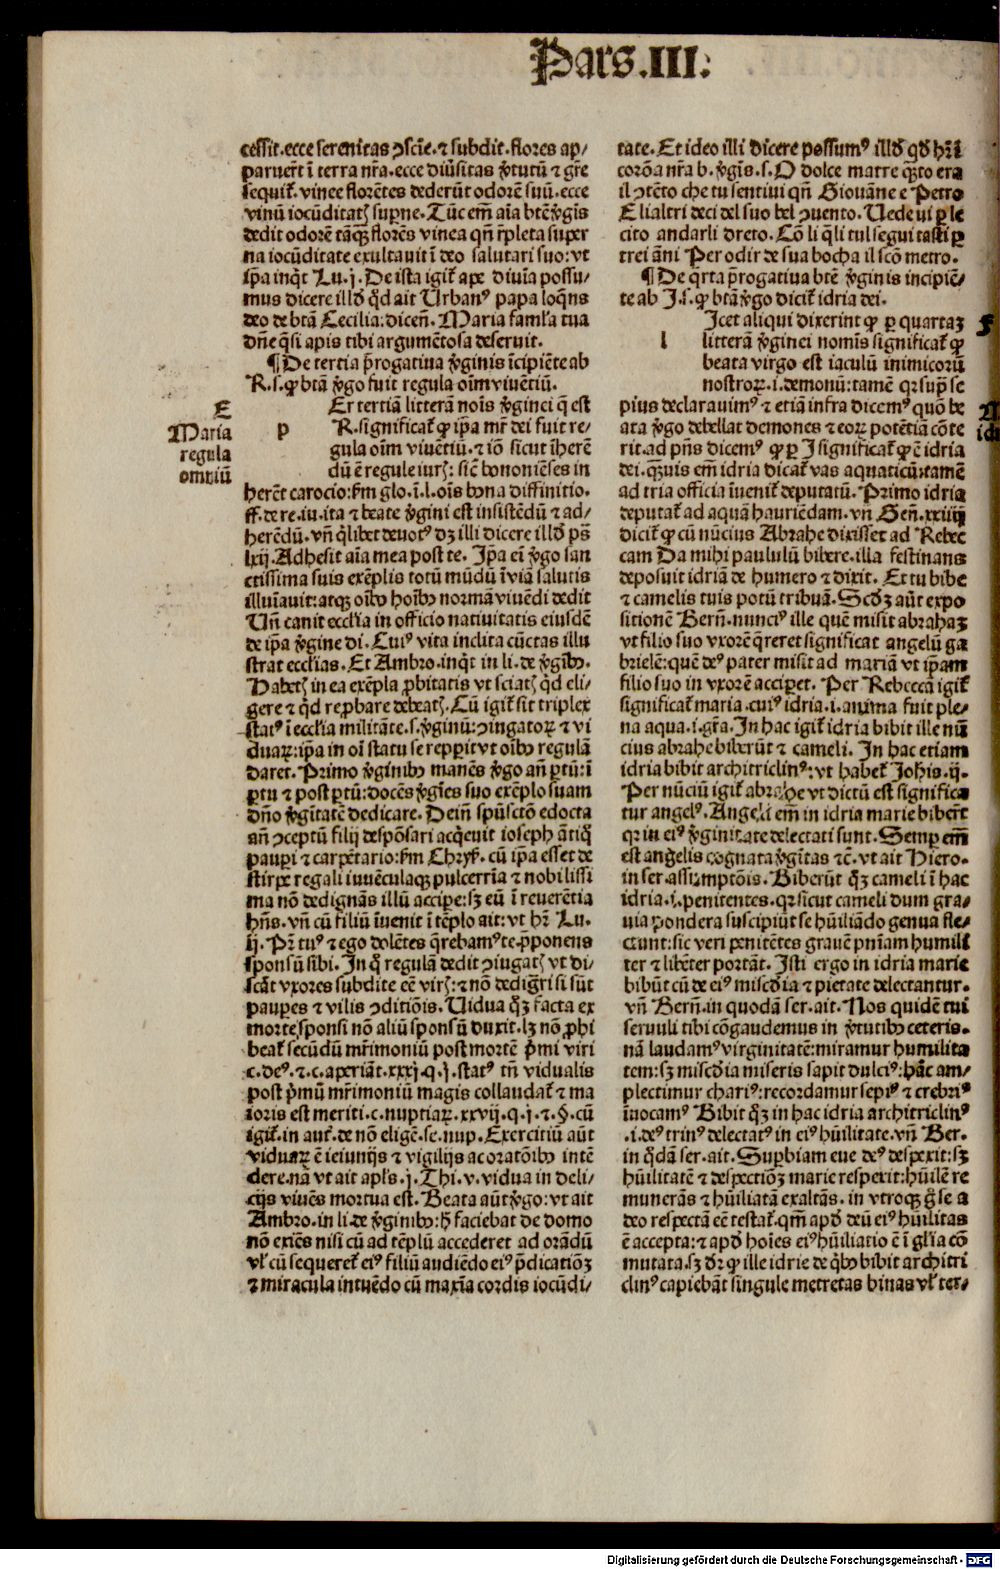 Pars.III.
cessit.ecce serenitas ꝯscie̅.⁊ subdit.flores ap⸗
paruer̅t i̅ terra nr̅a.ecce diu̅sitas v̓tutu̅ ⁊ gr̅e
sequit᷑.vinee flore̅tes dederu̅t odore̅ suu̅.ecce
vinu̅ iocu̅ditatꝫ supne.Tu̅c em̅ ai̅a bte̅ v̓gi̅s
dedit odore̅ ta̅qꝫ flore̅s vinea qn̅ r̅pleta super
na iocu̅ditate exultauit i̅ deo salutari suo:vt
ip̅a inq̇t Lu.j.De ista igit᷑ ape diui̅a possu⸗
mus dicere illd̅ qd̅ ait Urbanꝰ papa loq̅ns
deo de bta̅ Cecilia:dicen̅.Maria faml̅a tua
dn̅e q̅si apis tibi argume̅tosa deseruit.
¶De tertia p̅rogatiua v̓ginis i̅cipie̅te ab
R.s.ꝙ bta̅ v̓go fuit regula oi̅m viuentiu̅.
E
Maria
regula
omniu̅
p
Er tertia̅ littera̅ noi̅s v̓ginei q̅ est
R.significat᷑ ꝙ ip̅a mr̅ dei fuit re⸗
gula oi̅m viue̅tiu̅.⁊ io̅ sicut i̅here̅
du̅ e̅ regule iurꝭ:sic̅ bononie̅ses in
here̅t carocio:ẜm glo.i̅.l.oi̅s bona diffinitio.
ff.de re.iu.ita ⁊ beate v̓gini est insiste̅du̅ ⁊ ad⸗
here̅du̅.vn̅ q̇libet deuotꝰ dꝫ illi dicere illd̅ ps̅
lxij.Adhesit ai̅a mea post te.Ip̅a ei̅ v̓go san
ctissima suis exe̅plis totu̅ mu̅du̅ i̅ via̅ salutis
illui̅auit:atqꝫ oi̅bꝰ hoi̅bꝰ norma̅ viue̅di dedit
Un̅ canit eccl̅ia in officio natiuitatis eiusde̅
de ip̅a v̓gine di.Cuiꝰ vita inclita cu̅ctas illu
strat eccl̅ias.Et Ambro.inq̇t in li.de v̓gi̅bꝰ.
Habetꝫ in ea exe̅pla ꝓbitatis vt sciatꝫ qd̅ eli⸗
gere ⁊ qd̅ reꝓbare debeatꝫ.Cu̅ igit᷑ sit triplex
statꝰ i̅ eccl̅ia milita̅te.s.v̓ginu̅:ꝯiugatoꝝ ⁊ vi
duaꝝ:ip̅a in oi̅ statu se reꝑit vt oi̅bꝰ regula̅
daret.Primo v̓ginibꝰ mane̅s v̓go an̅ ꝑtu̅:i̅
ꝑtu ⁊ post ꝑtu̅:doce̅s v̓gi̅es suo exe̅plo suam
dn̅o v̓gi̅tate̅ dedicare.Dein̅ spu̅scto̅ edocta
an̅ ꝯceptu̅ filij despo̅sari acq̇euit ioseph a̅tiq̇
paupi ⁊ carpe̅tario:ẜm Chryẜ.cu̅ ip̅a esset de
stirpe regali iuue̅culaqꝫ pulcerri̅a ⁊ nobilissi
ma no̅ dedigna̅s illu̅ accipe:sꝫ eu̅ i̅ reuere̅tia
hn̅s.vn̅ cu̅ filiu̅ i̅uenit i̅ te̅plo ait:vt hr̅ Lu.
ij.Pr̅ tuꝰ ⁊ ego dole̅tes q̅rebamꝰ te.p̅ponens
sponsu̅ sibi.In q̇ regula̅ dedit ꝯiugatꝫ vt di⸗
sca̅t vxores subdite ee̅ virꝭ:⁊ no̅ dedig̅ri si su̅t
paupes ⁊ vilis ꝯditio̅is.Uidua q̊ꝫ facta ex
morte sponsi no̅ aliu̅ sponsu̅ duxit.lꝫ no̅ ꝓhi
beat᷑ secu̅du̅ mr̅imoniu̅ post morte̅ p̓mi viri
c.deꝰ.⁊.c.aperia̅t.xxxj.q.j.statꝰ tn̅ vidualis
post p̓mu̅ mr̅imoniu̅ magis collaudat᷑ ⁊ ma
ioris est meriti.c.nuptiaꝝ.xxvij.q.j.⁊.§.cu̅
igit᷑.in aut̅.de no̅ elige̅.se.nup.Exercitiu̅ au̅t
viduaꝝ e̅ ieiunijs ⁊ vigilijs ac orato̅ibꝰ inte̅
dere.na̅ vt ait apl̅s.j.Thi.v.vidua in deli⸗
cijs viue̅s mortua est.Beata au̅t v̓go:vt ait
Ambro.in li.de v̓ginibꝰ:h̅ faciebat de domo
no̅ exie̅s nisi cu̅ ad te̅plu̅ accederet ad ora̅du̅
vl̅ cu̅ sequeret᷑ eiꝰ filiu̅ audie̅do eiꝰ p̅dicatio̅ꝫ
⁊ miracula intue̅do cu̅ maxi̅a cordis iocu̅di⸗
tate.Et ideo illi dicere possumꝰ illd̅ qd̅ hr̅ i̅
coro̅a nr̅a b.v̓gi̅s.s.O dolce matre qu̅to era
il ꝯte̅to che tu sentiui qn̅ Gioua̅ne e Petro
E li altri deci del suo bel ꝯuento.Uede ui ꝑ le
cito andarli dreto.Co̅ li q̅li tul segui tasti ꝑ
trei a̅ni Per odir de sua bocha il sco̅ metro.
¶De q̅rta p̅rogatiua bte̅ v̓ginis incipie̅⸗
te ab I.s.ꝙ bta̅ v̓go dicit᷑ idria dei.
l
Icet aliqui dixerint ꝙ ꝑ quartaꝫ
littera̅ v̓ginei nomi̅s significat᷑ ꝙ
beata virgo est iaculu̅ inimicoru̅
nostroꝝ.i.demonu̅:tame̅ qr sup̅ se
pius declarauimꝰ ⁊ etia̅ infra dicemꝰ quo̅ be
ata v̓go debellat demones ⁊ eoꝝ pote̅tia̅ co̅te
rit.ad pn̅s dicemꝰ ꝙ ꝑ I significat᷑ ꝙ e̅ idria
dei.qu̅uis em̅ idria dicat᷑ vas aquaticu̅:tame̅
ad tria officia i̅uenit᷑ deputatu̅.Primo idria
deputat᷑ ad aqua̅ haurie̅dam.vn̅ Gen̅.xxiiij
dicit᷑ ꝙ cu̅ nu̅cius Abrahe dixisset ad Rebec
cam Da mihi paululu̅ bibere.illa festinans
deposuit idria̅ de humero ⁊ dixit.Et tu bibe
⁊ camelis tuis potu̅ tribua̅.Scd̅ꝫ au̅t expo
sitione̅ Bern̅.nunciꝰ ille que̅ misit abrahaꝫ
vt filio suo vxore̅ q̅reret significat angelu̅ ga
briele̅:que̅ deꝰ pater misit ad maria̅ vt ip̅am
filio suo in vxore̅ acciperet.Per Rebecca̅ igit᷑
significat᷑ maria.cuiꝰ idria.i.anima fuit ple⸗
na aqua.i.gr̅a.In hac igit᷑ idria bibit ille nu̅
cius abrahe biberu̅t ⁊ cameli.In hac etiam
idria bibit architriclinꝰ:vt habet᷑ Johis.ij.
Per nu̅ciu̅ igit᷑ abrahe vt dictu̅ est significa
tur angelꝰ.Angeli em̅ in idria marie biber̅t
qr in eiꝰ v̓ginitate delectati sunt.Semp em̅
est angelis cognata v̓gi̅tas ⁊c̅.vt ait Hiero.
in ser.assumpto̅is.Biberu̅t q̊ꝫ cameli i̅ hac
idria.i.penitentes.qr sicut cameli dum gra⸗
uia pondera suscipiu̅t se hu̅ilia̅do genua fle⸗
ctunt:sic veri penite̅tes graue̅ pn̅iam humili
ter ⁊ libe̅ter porta̅t.Isti ergo in idria marie
bibu̅t cu̅ de eiꝰ miscd̅ia ⁊ pietate delectantur.
vn̅ Bern̅.in quoda̅ ser.ait.Nos quide̅ tui
seruuli tibi co̅gaudemus in v̓tutibꝰ ceteris.
na̅ laudamꝰ virginitate̅:miramur humilita
tem:sꝫ miscd̅ia miseris sapit dulciꝰ:ha̅c am⸗
plectimur chariꝰ:recordamur sepiꝰ ⁊ crebriꝰ
i̅uocamꝰ Bibit q̊ꝫ in hac idria architriclinꝰ
.i.deꝰ trinꝰ delectatꝰ in eiꝰ hu̅ilitate.vn̅ Ber.
in q̊da̅ ser.ait.Supbiam eue deꝰ despexit:sꝫ
hu̅ilitate̅ ⁊ despectio̅ꝫ marie respexit:hu̅ile̅ re
munera̅s ⁊ hu̅iliata̅ exalta̅s.in vtroqꝫ g̊ se a
deo respecta̅ ee̅ testat᷑.qm̅ apd̅ deu̅ eiꝰ hu̅ilitas
e̅ accepta:⁊ apd̅ hoi̅es eiꝰ hu̅iliatio e̅ i̅ gl̅ia co̅
mutata.sꝫ dr̅ ꝙ ille idrie de q̇bꝰ bibit architri
clinꝰ capieba̅t singule metretas binas vl̅ ter⸗
F
Digitalisierung gefördert durch die Deutsche Forschungsgemeinschaft - DFG